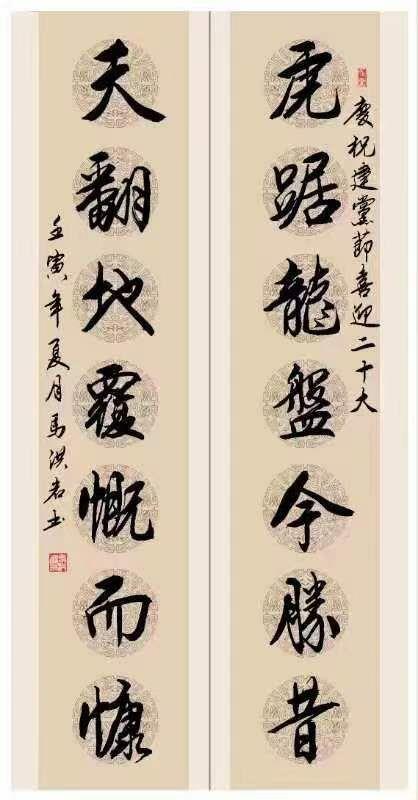 慶祝建黨節喜迎二十大
虎踞龍盤今勝昔
天翻地覆慨而慷
壬寅年夏月馬洪书